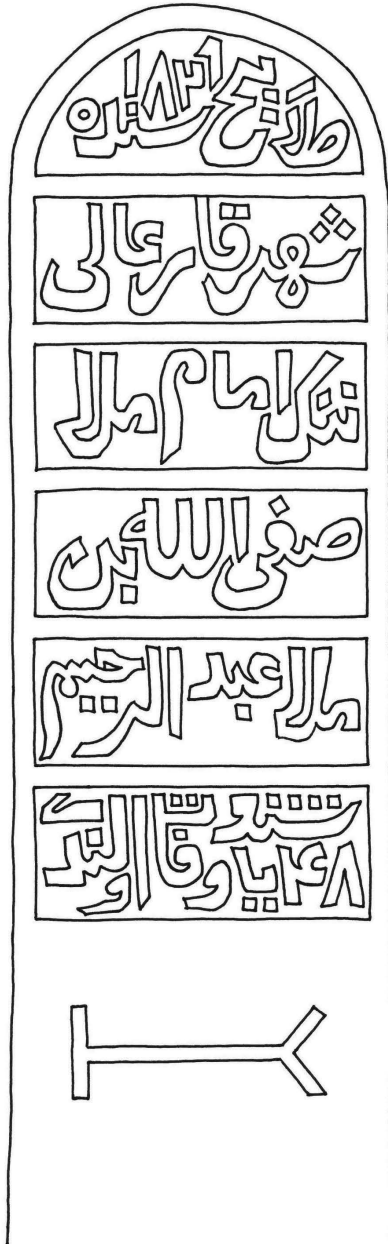 طاريخ ١٨٢١ سنده
شهر قار عالى
ننك امام ملا
صفى الله بن
ملا عبد الرحيم
٤٨ ياشنده وفات اولندى